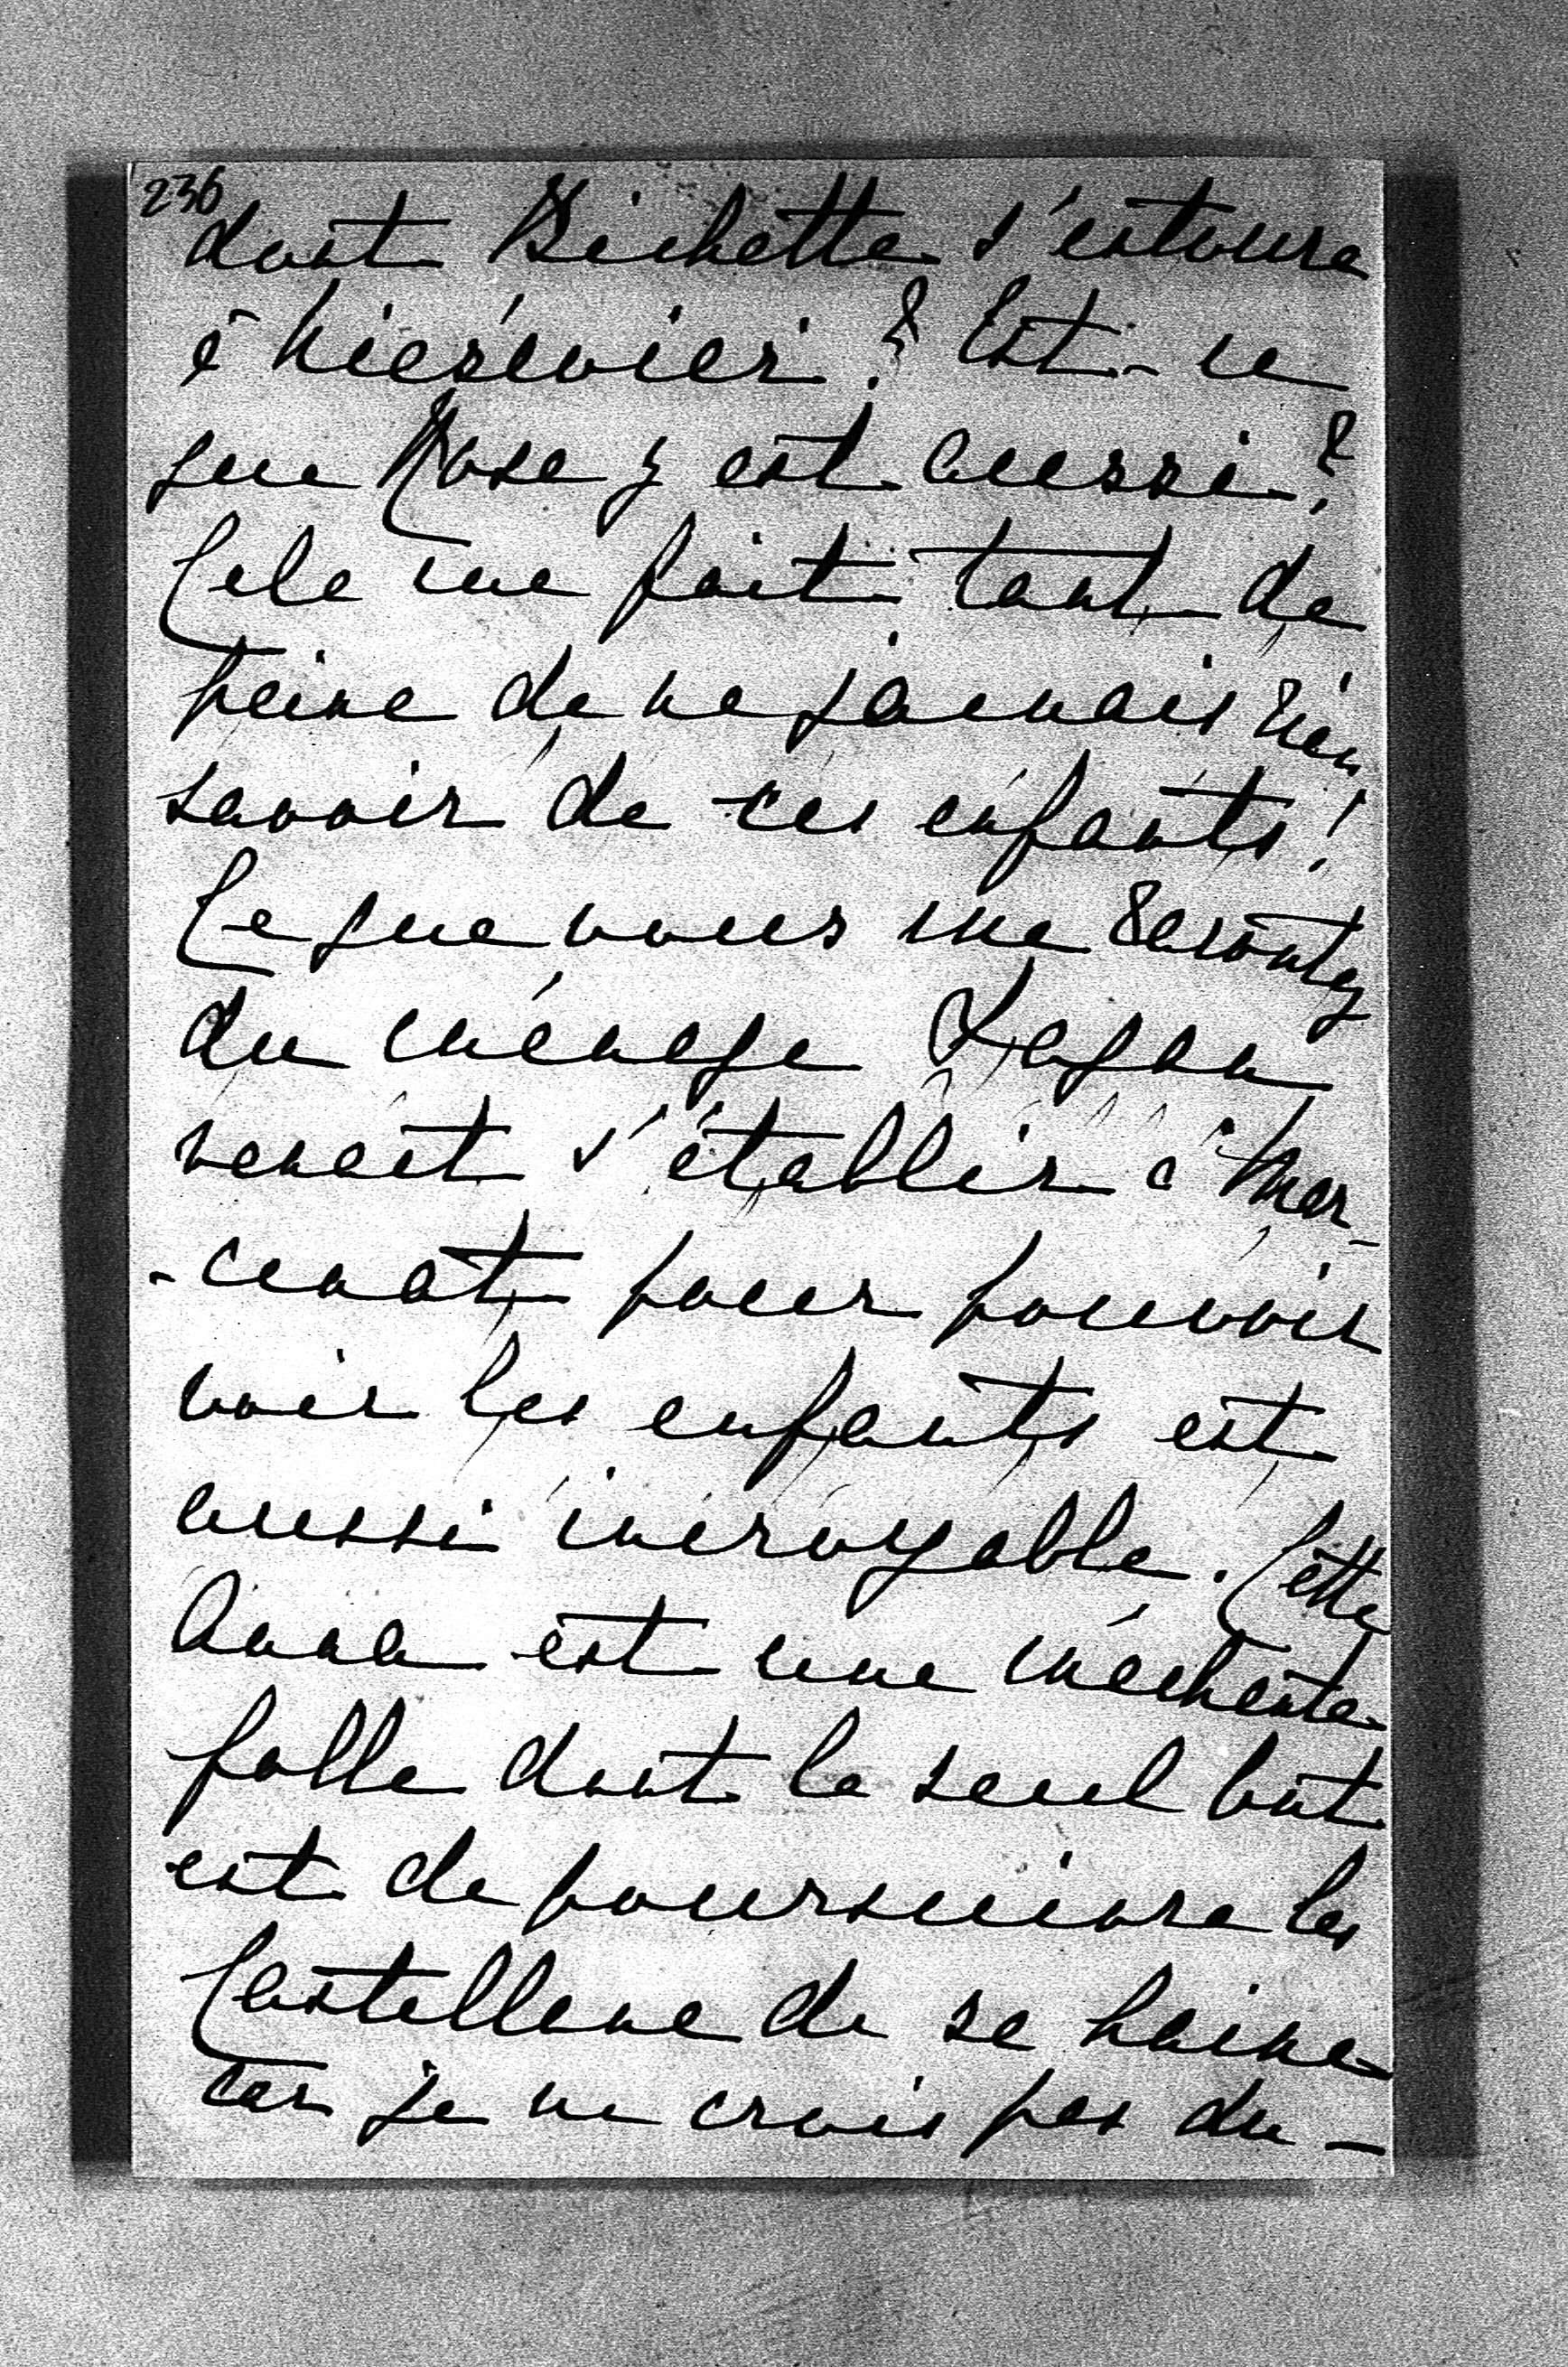 236
dont Bichette s'entoure
à Niesievier? Est-ce
que Rose y est aussi?
Cela me fait tant de
peine de ne jamais rien
savoir de ces enfants!
Ce que vous me racontez
du ménage Sagan
venant s'établir à Mar-
-cenat pour pouvoir
voir les enfants est
aussi incroyable. Cette
Anna est une méchante
folle dont le seul but
est de poursuivre les
Castellane de sa haine
car je ne crois pas du-